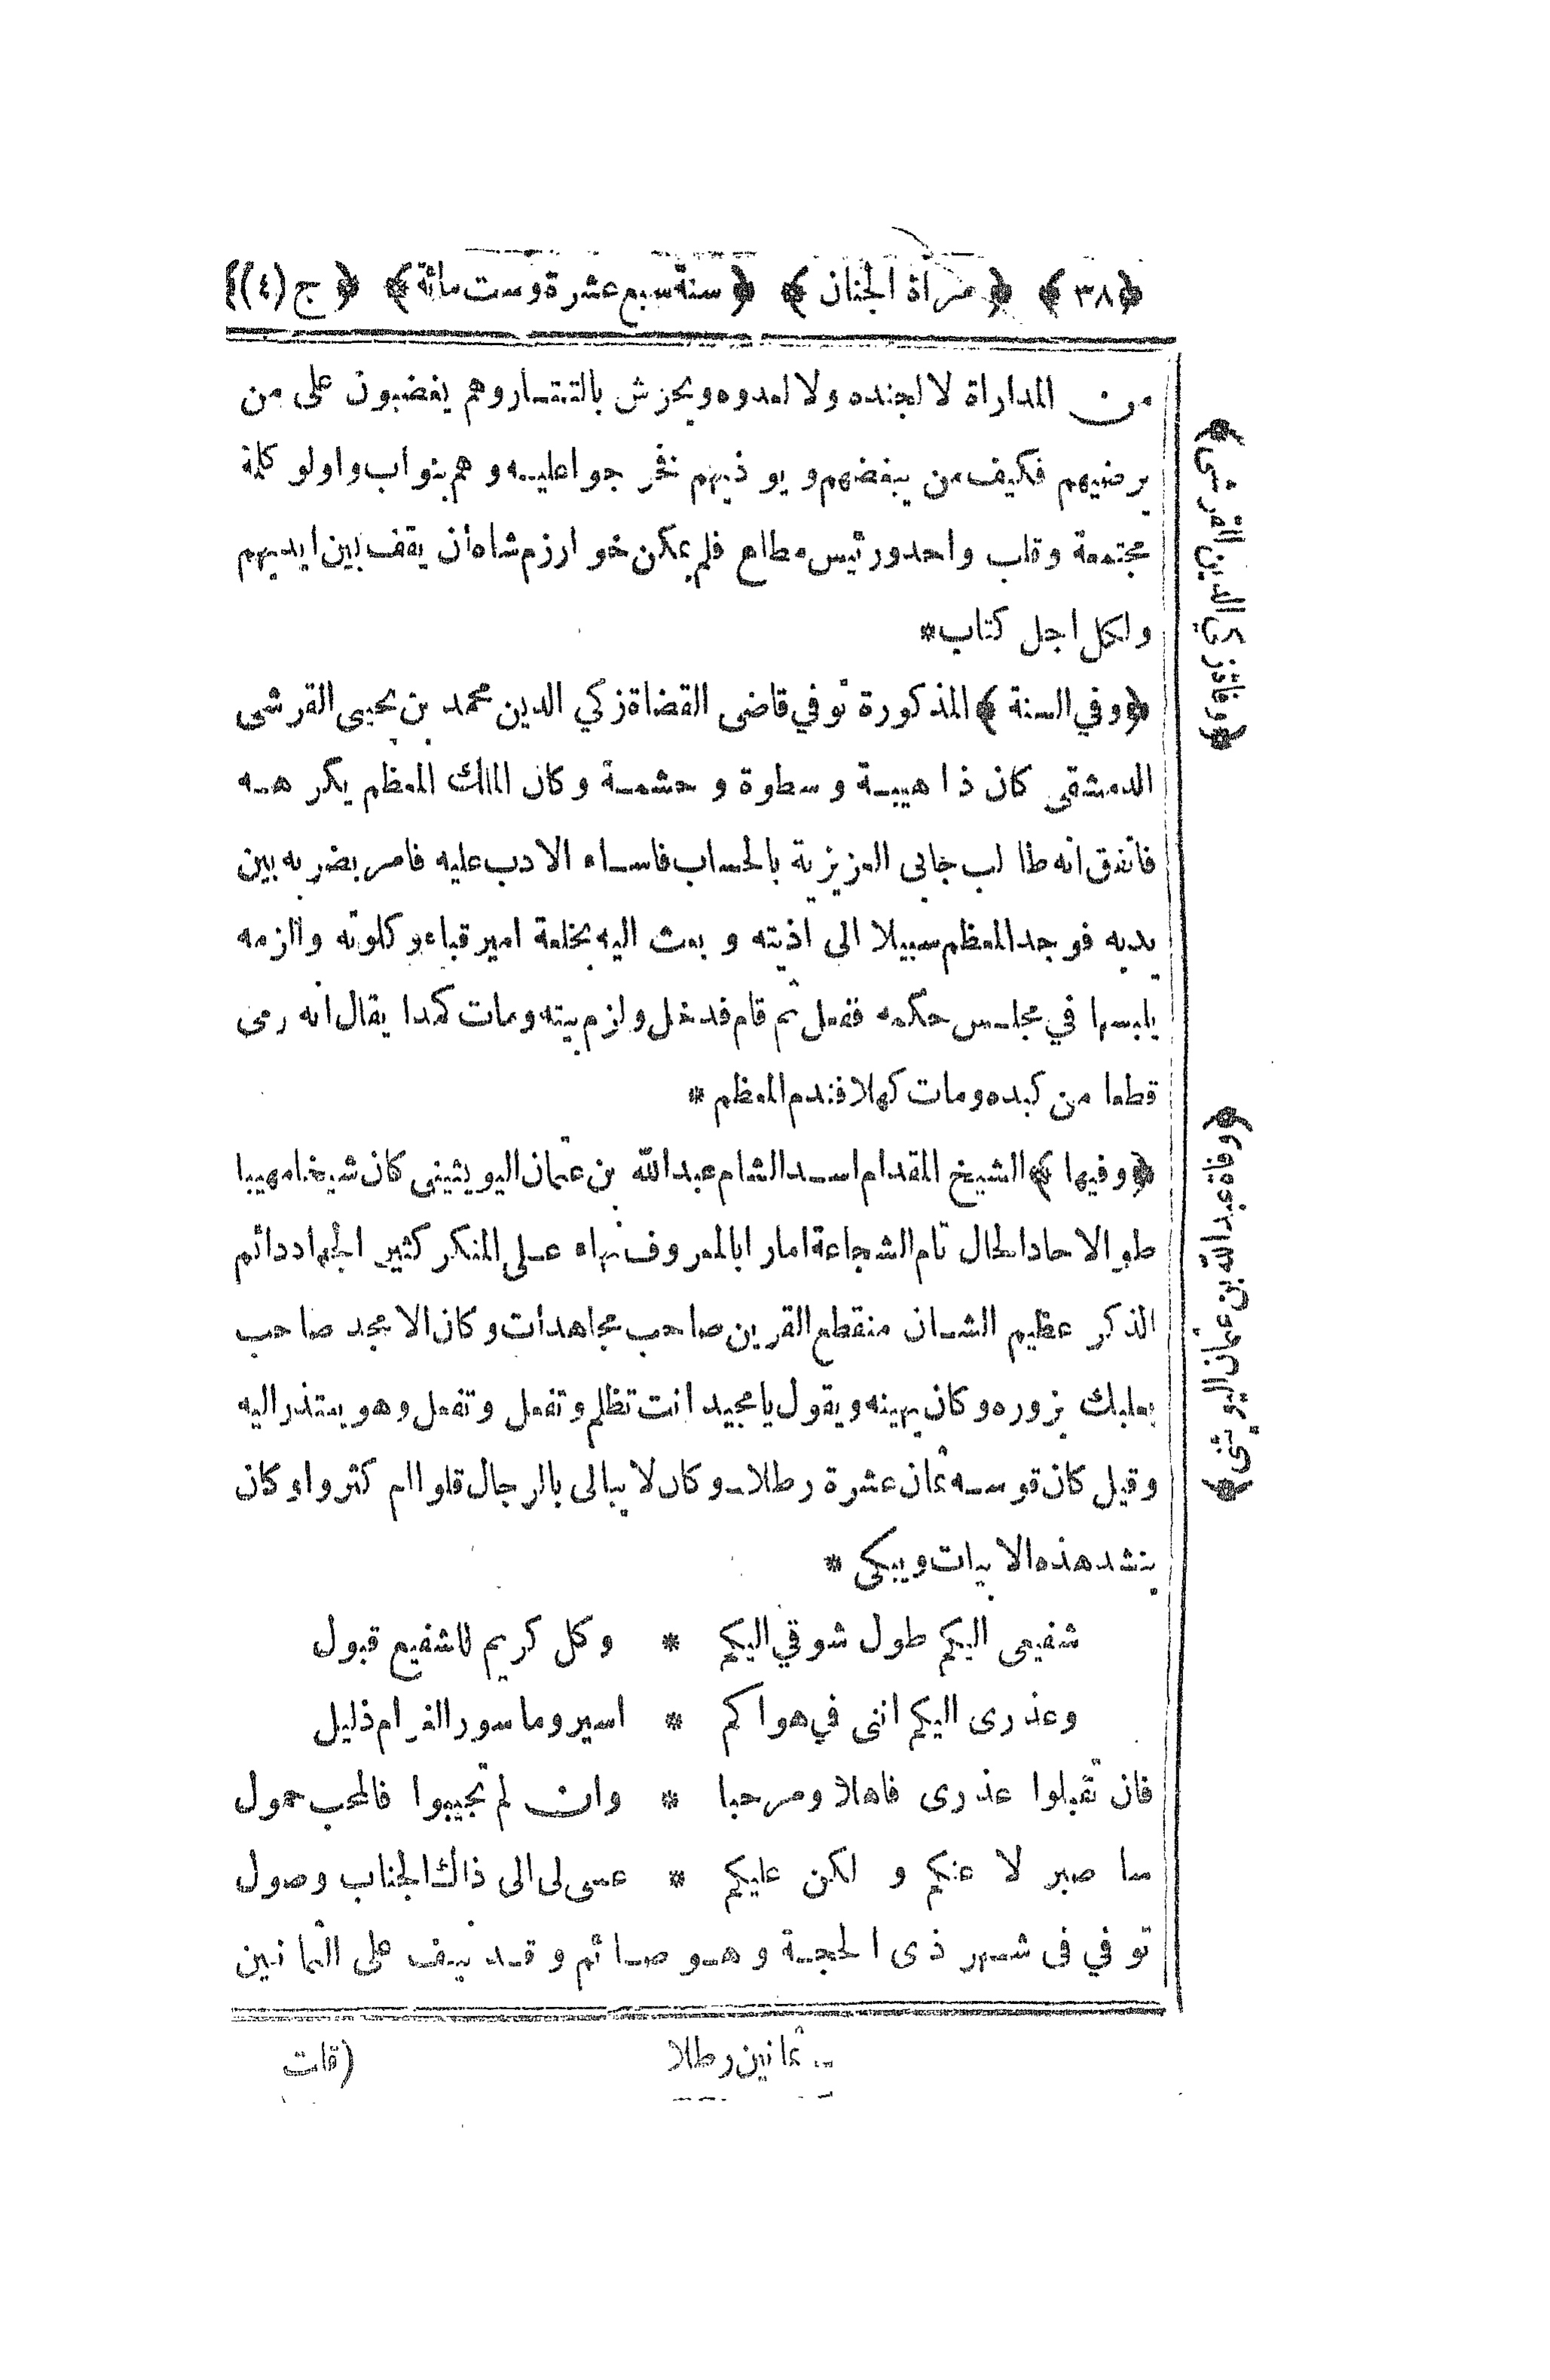 ﴿٣٨﴾ ﴿مرآة الجنان﴾ ﴿سنة سبع عشرة وست مائة﴾ ﴿ج (٤)﴾
من المداراة لا لجنده ولا لعدوه ويحرش بالتتار وهم يغضبون على من
يرضيهم فكيف من يبغضهم ويوذيهم نخر جوا عليه وهم بنو اب واولو كلمة
مجتمعة وقلب واحد ورئيس مطاع فلم يمكن خوارزم شاه أن يقف بين ايديهم
ولكل اجل كتاب*
﴿وفي السنة﴾ المذكورة توفي قاضى القضاة زكي الدين محمد بن يحيى القرشى
الدمشقى كان ذا هيبة و سطوة و حشمة وكان الملك المعظم يكرهه
فاتفق انه طالب جابى العزيزية بالحساب فاساء الادب عليه فامر بضربه بين
يديه فوجد المعظم سبيلا الى اذيته و بعث اليه بخلعة امير قباء وكلوته والزمه
يلبسها في مجلس حكمه ففعل ثم قام فدخل ولزم بيته ومات كمدا يقال انه رمى
قطعا من كبده ومات كهلا فندم المعظم *
﴿وفيها﴾ الشيخ المقدام اسد الشام عبدالله بن عثمان اليويثينى كان شيخا مهيبا
طوالا حاد الحال تام الشجاعة امارا بالمعروف نهاه على المنكر كثير الجهاد دائم
الذكر عظيم الشان منقطع القرين صاحب مجاهدات وكان الامجد صاحب
بعلبك يزوره وكان يهينه ويقول يا مجيد انت تظلم وتفعل وتفعل وهو يعتذر اليه
وقيل كان قوسه ثمان عشرة رطلا ـ وكان لا يبالى بالرجال قلوا ام كثروا وكان
ينشد هذه الابيات ويبكى *
شفيعى اليكم طول شوقي اليكم * وكل كريم للشفيع قبول
وعذرى اليكم اننى في هواكم * اسير وماسور الغرام ذليل
فان تقبلوا عذرى فاهلا ومرحبا * وان لم تجيبوا فالمحب حمول
سا صبر لا عنكم و لكن عليكم * عسى لى الى ذاك الجناب وصول
توفي فى شهر ذى الحجة وهو صائم وقد نيف على الثمانين
ثمانين رطلا
(قلت
﴿وفاة زكي الدين القرشى﴾
﴿وفاة عبدالله بن عثمان اليويثى﴾